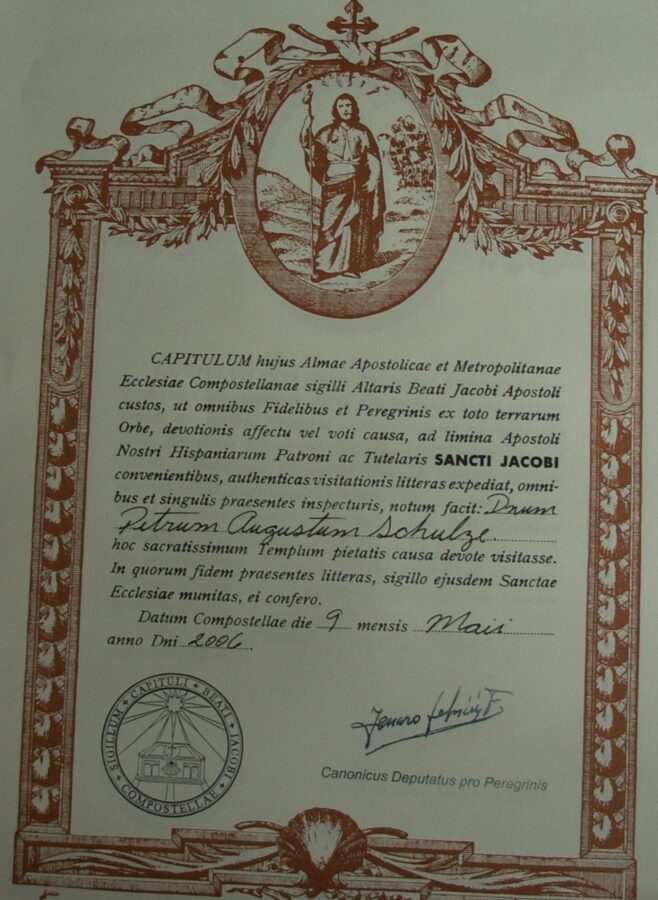 CAPITULUM hujus Almae Apostolicae et Metropolitanae
Ecclesiae Compostellanae sigilli Altaris Beati Jacobi Apostoli
custos, ut omnibus Fidelibus et Peregrinis ex toto terrarum
Orbe, devotionis affectu vel voti causa, ad limina Apostoli
Nostri Hispaniarum Patroni ac Tutelaris SANCTI JACOBI
convenientibus, authenticas visitationis litteras expediat, omni-
bus et singulis praesentes inspecturis, notum facit: Dnum
Petrum Augustum Schulze
hoc sacratissimum Templum pietatis causa devote visitasse.
In quorum fidem praesentes litteras, sigillo ejusdem Sanctae
Ecclesiae munitas, ei confero.
Datum Compostellae die 9 mensis Maii
anno Dni 2006.
SIGILLUM + CAPITULI + BEATI + JACOBI + COMPOSTELLAE +
Jenaro
Canonicus Deputatus pro Peregrinis